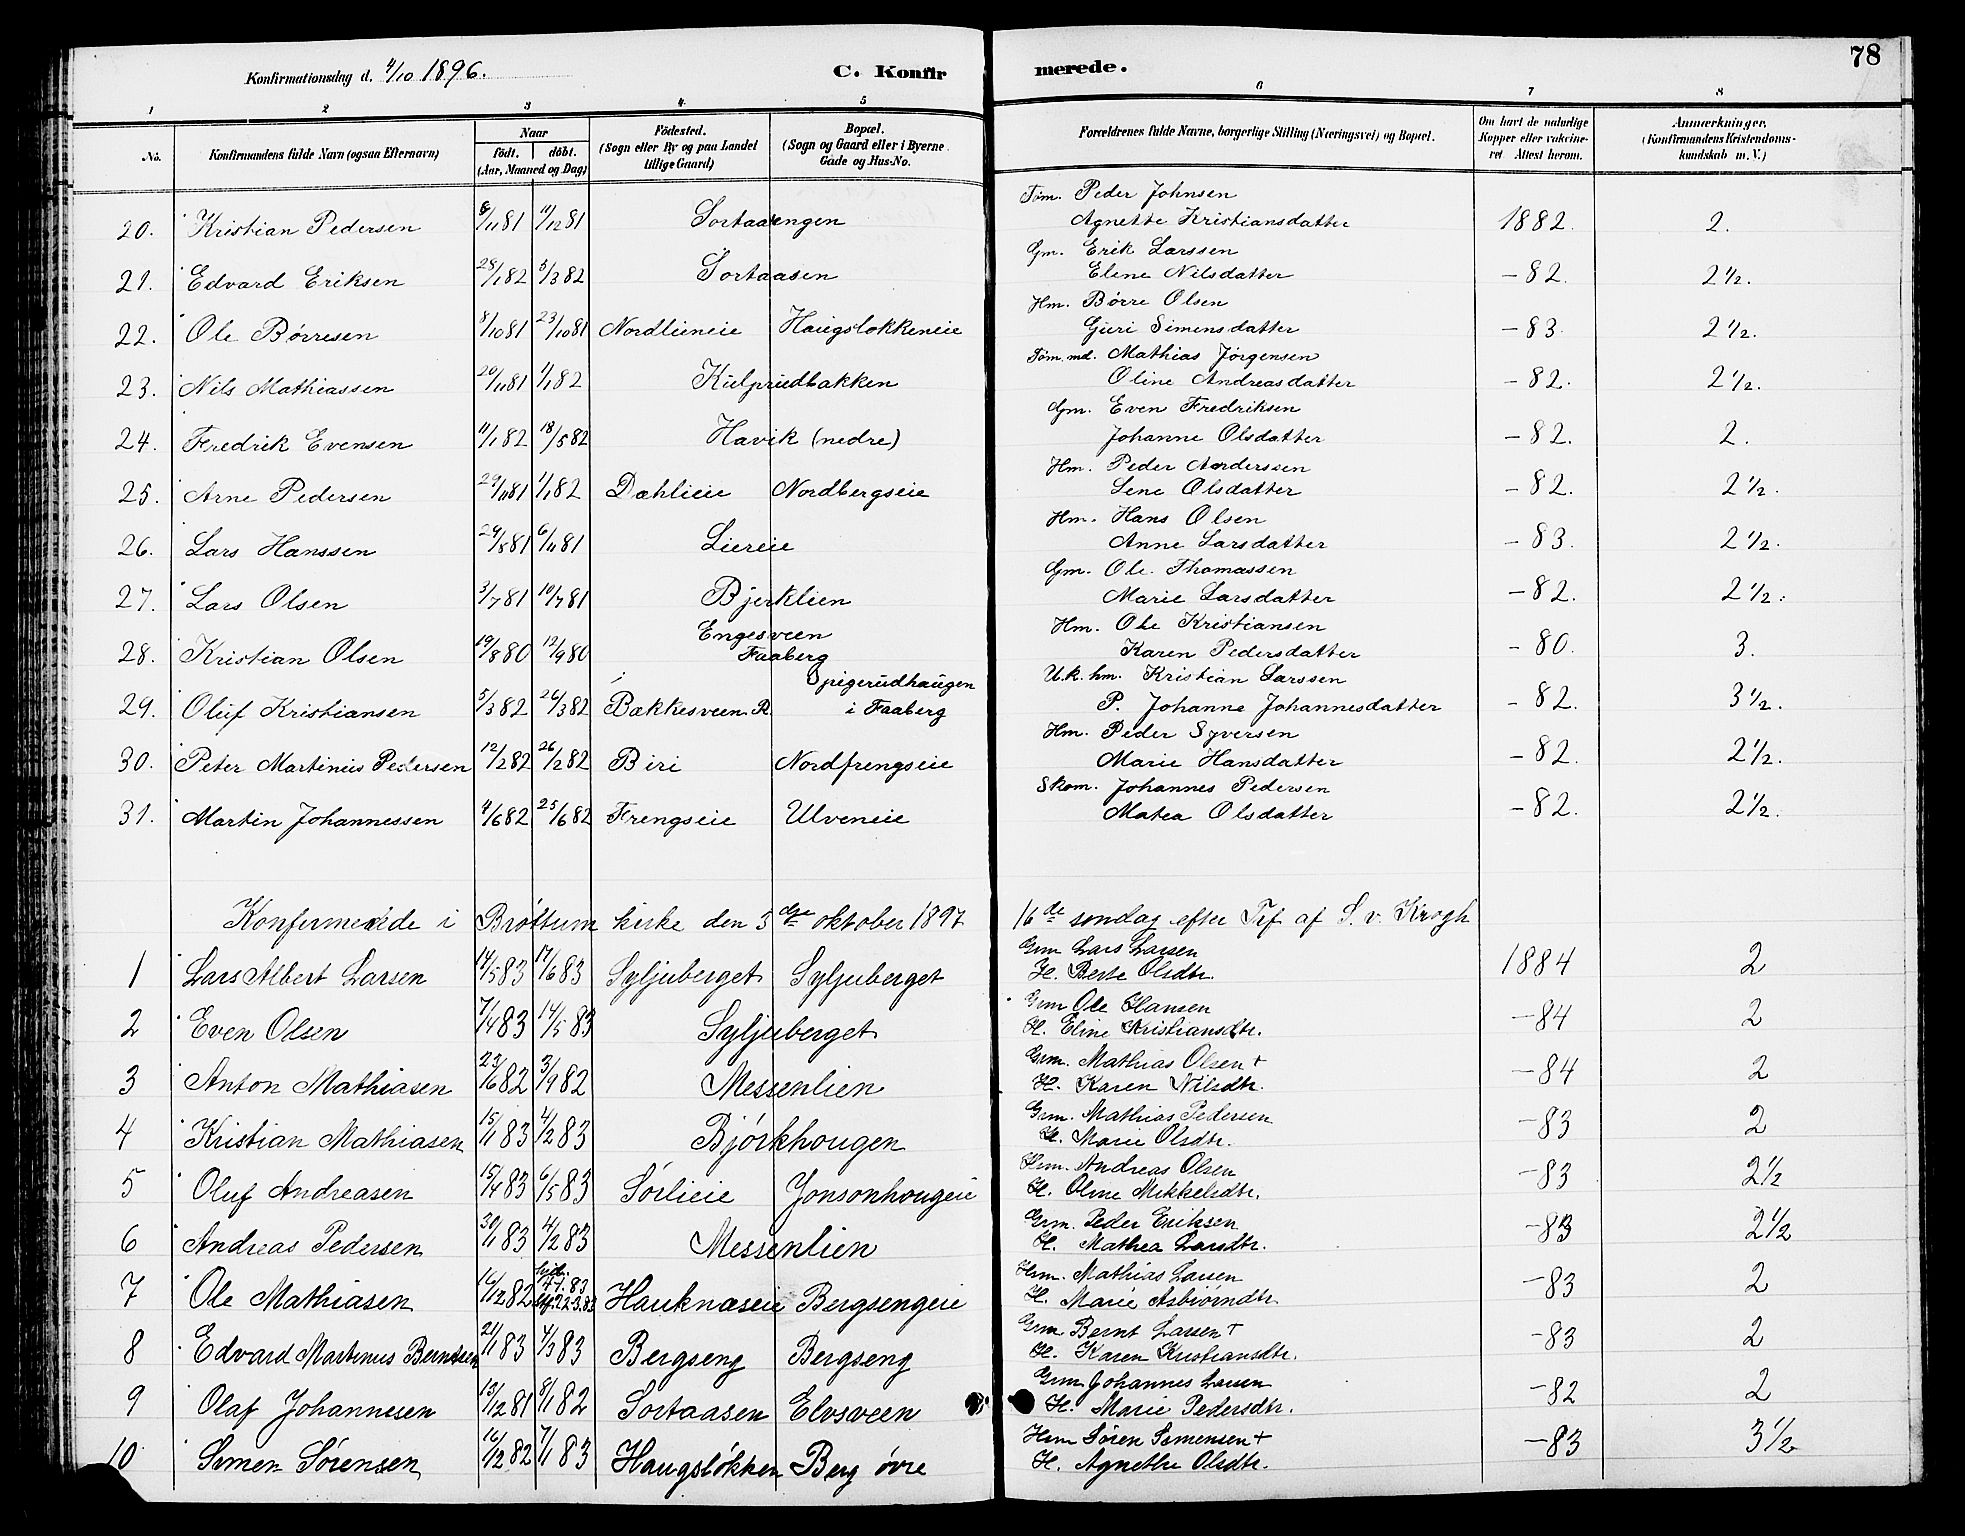 78
Konfirmationsdag d. 4/10 1896. C. Konfirmerede.
1 2 3 4 5 6 7 8
No. Konfirmandens fulde Navn (ogsaa Efternavn) Naar födt. döbt. (Aar, Maaned og Dag) Födested. (Sogn eller By og paa Landet tillige Gaard) Bopæl. (Sogn og Gaard eller i Byerne Gade og Hus-No. Forældrenes fulde Navne, borgerlige Stilling (Næringsvei) og Bopæl. Om havt de naturlige Kopper eller vaccineret Attest herom. Anmærkninger. (Konfirmandens Kristendomskundskab m. V.)
20. Kristian Pedersen 6/11 81 11/12 81 Sortaaengen Tøm. Peder Johnsen
Agnette Kristiansdatter 1882. 2.
21. Edvard Eriksen 28/1 82 5/3 82 Sortaasen Gm. Erik Larssen
Eline Nilsdatter -82. 2 1/2.
22. Ole Børresen 8/10 81 23/10 81 Nordlieneie Haugsløkkeneie Hm. Børre Olsen
Guri Simensdatter -83. 2 1/2.
23. Nils Mathiassen 20/11 81 1/1 82 Kulprudbakken Tøm.md. Mathias Jørgensen
Oline Andreasdatter -82. 2 1/2.
24. Fredrik Evensen 11/1 82 18/5 82 Havik (nedre) Gm. Even Fredriksen
Johanne Olsdatter -82. 2.
25. Arne Pedersen 29/11 81 1/1 82 Dæhlieie Nordbergseie Hm. Peder Anderssen
Lene Olsdatter -82. 2 1/2.
26. Lars Hanssen 29/8 81 6/11 81 Liereie Hm. Hans Olsen
Anne Larsdatter -83. 2 1/2.
27. Lars Olsen 3/7 81 10/7 81 Bjerklien Gm. Ole Thomassen
Marie Larsdatter -82. 2 1/2.
28. Kristian Olsen 19/8 80 12/9 80 Engesveen
Faaberg Hm. Ole Kristiansen
Karen Pedersdatter -80. 3.
29. Oluf Kristiansen 5/3 82 26/3 82 Bakkesveen R. Spigerudhaugen
i Faaberg U.k. hm. Kristian Larssen
P. Johanne Johannesdatter -82. 3 1/2.
30. Peter Martinius Pedersen 12/2 82 26/2 82 Biri Nordfrengseie Hm. Peder Syversen
Marie Hansdatter -82. 2 1/2.
31. Martin Johannessen 4/6 82 25/6 82 Frengseie Ulveneie Skom. Johannes Pedersen
Matea Olsdatter -82. 2 1/2.
Konfermerede i Brøttum kirke den 3die oktober 1897 16de søndag efter Tref af S. v. Krogh
1 Lars Albert Larsen 14/5 83 17/6 83 Syljuberget Syljuberget Grm Lars Larsen
H. Berte Olsdtr. 1884 2
2 Even Olsen 7/4 83 14/5 83 Syljuberget Grm Ole Hansen
H. Eline Kristiansdtr. -84 2
3 Anton Mathiasen 23/6 82 3/9 82 Messenlien Grm. Mathias Olsen +
H. Karen Nilsdtr. -84 2
4 Kristian Mathiasen 15/1 83 4/2 83 Bjørkhougen Grm. Mathias Pedersen
H. Marie Olsdtr. -83 2
5 Oluf Andreasen 15/4 83 6/5 83 Sørlieie Jonsonhougeie Hrm. Andreas Olsen
H. Oline Mikkelsdtr. -83 2 1/2
6 Andreas Pedersen 30/1 83 4/2 83 Messenlien Grm. Peder Eriksen
H. Mathea Larsdtr. -83 2 1/2
7 Ole Mathiasen 16/12 82 hjd. 4 1. 83 22.3.83 Hauknæseie Bergsengeie Hrm. Mathias Larsen
H. Marie Asbiørndtr. -83 2
8 Edvard Martinus Berntsen 21/1 83 4/3 83 Bergseng Bergseng Grm Bernt Larsen +
H. Karen Kristiansdtr. -83 2
9 Olaf Johannesen 13/12 81 8/1 82 Sortaasen Elvsveen Grm Johannes Larsen
H. Marie Pedersdtr. -82 2
10 Simen Sørensen 16/12 82 7/1 83 Haugsløkken Berg øvre Hrm Søren Semensen +
H. Agnethe Olsdtr. -83 3 1/2